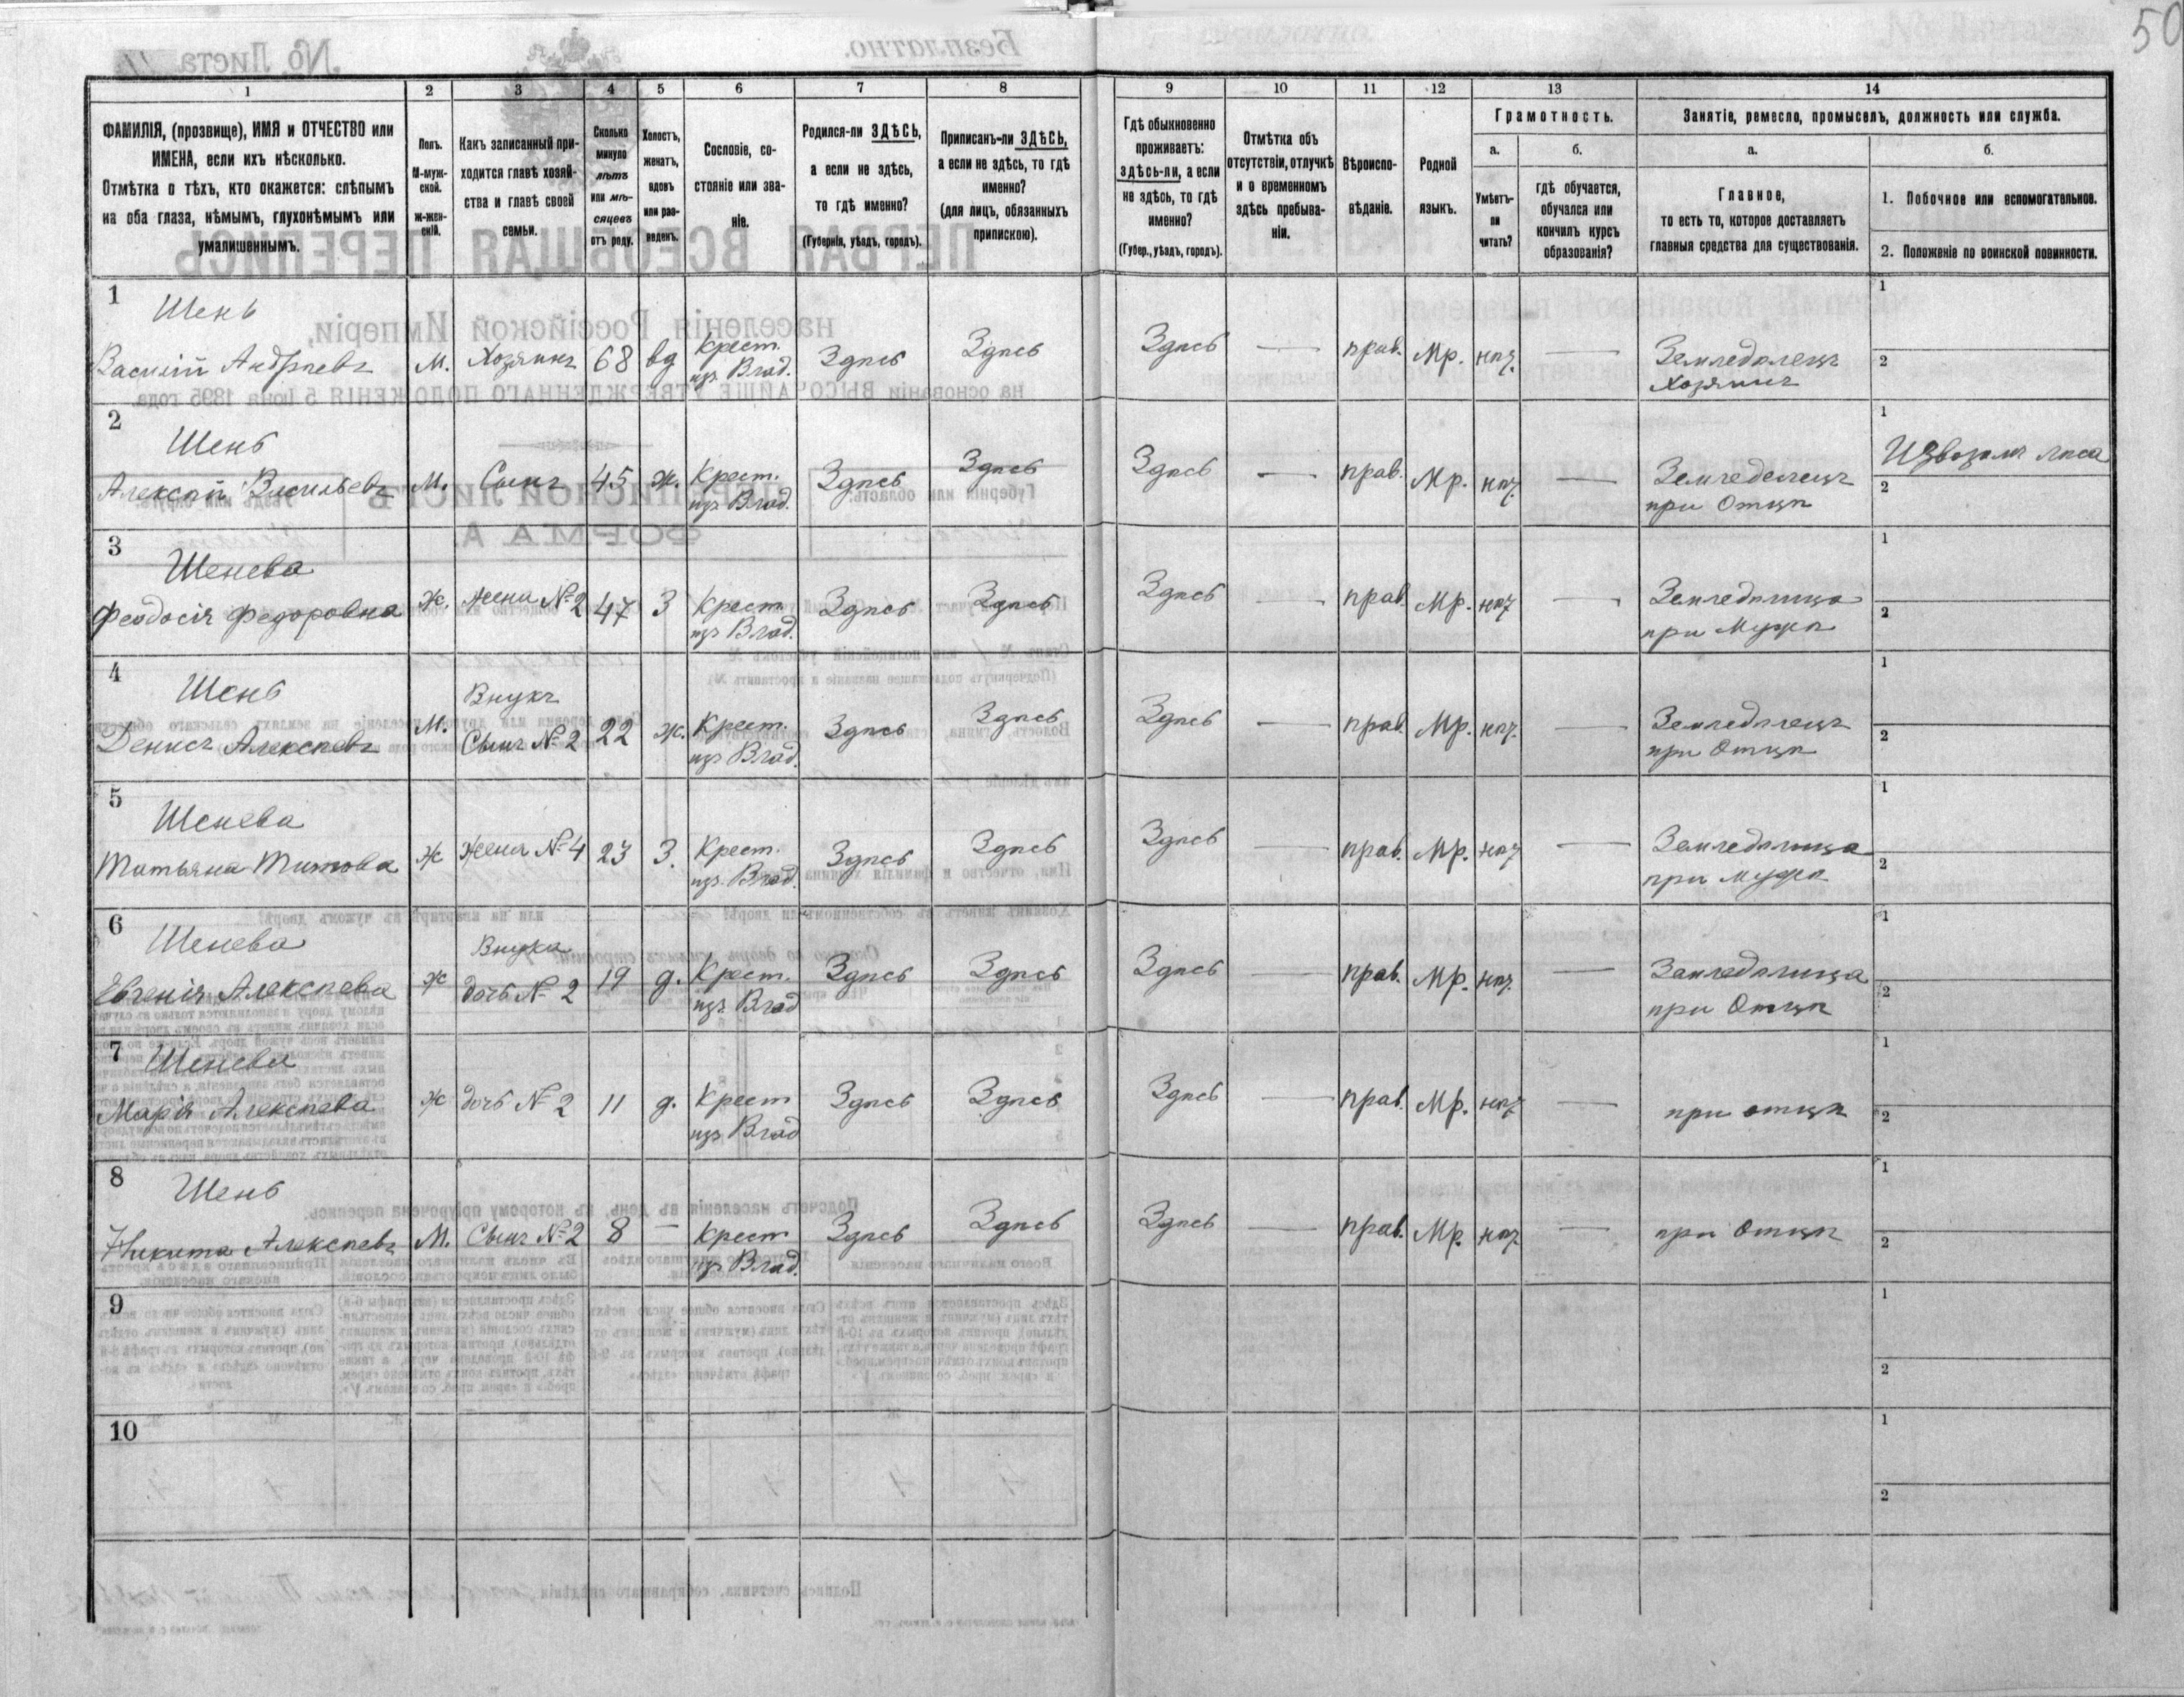 50
1 2 3 4 5 6 7 8 9 10 11 12 13 14
ФАМИЛІЯ, (прозвище), ИМЯ и ОТЧЕСТВО или
ИМЕНА, если ихъ нѣсколько.
Отмѣтка о тѣхъ, кто окажется: слѣпымъ
на оба глаза, нѣмымъ, глухонѣмымъ или
умалишеннымъ.
Полъ.
М-муж-
ской.
Ж-жен-
скій.
Какъ записанный при-
ходится главѣ хозяй-
ства и главѣ своей
семьи.
Сколько
минуло
лѣтъ
или мѣ-
сяцевъ
отъ роду.
Холостъ,
женатъ,
вдовъ
или раз-
веденъ.
Сословіе, со-
стояніе или зва-
ніе.
Родился-ли ЗДѢСЬ,
а если не здѣсь,
то гдѣ именно?
(Губернія, уѣздъ, городъ).
Приписанъ-ли ЗДѢСЬ,
а если не здѣсь, то гдѣ
именно?
(для лицъ, обязанныхъ
припискою).
Гдѣ обыкновенно
проживаетъ:
здѣсь-ли, а если
не здѣсь, то гдѣ
именно?
(Губер., уѣздъ, городъ).
Отмѣтка объ
отсутствіи, отлучкѣ
и о временномъ
здѣсь пребыва-
ніи.
Вѣроиспо-
вѣданіе.
Родной
языкъ.
Грамотность.
а.
Умѣетъ-
ли
читать?
б.
гдѣ обучается,
обучался или
кончилъ курсъ
образованія?
Занятіе, ремесло, промыселъ, должность или служба.
а.
Главное,
то есть то, которое доставляетъ
главныя средства для существованія.
б.
1. Побочное или вспомогательное.
2. Положеніе по воинской повинности.
1 Шень 1
Василій Андрѣевъ М. Хозяинъ 68 вд Крест. Здѣсь Здѣсь Здѣсь — прав. Мр. нѣт. — Земледѣлецъ 2
из Влад. Хозяинъ
2 Шень 1 Извозомъ лѣса
Алексѣй Васильевъ М. Сынъ 45 ж. Крест. Здѣсь Здѣсь Здѣсь — прав. Мр. нѣт. — Земледелецъ 2
из Влад. при Отцѣ
3 Шенева 1
Феодосія Федоровна Ж. жена № 2 47 З Крест Здѣсь Здѣсь Здѣсь — прав. Мр. нѣт — Земледѣлица 2
из Влад. при Мужѣ
4 Шень Внукъ 1
Денисъ Алексѣевъ М. Сынъ № 2 22 ж. Крест. Здѣсь Здѣсь Здѣсь — прав. Мр. нѣт. — Земледѣлецъ 2
из Влад. при Отцѣ
5 Шенева 1
Татьяна Титова Ж Жена № 4 23 З. Крест. Здѣсь Здѣсь Здѣсь — прав. Мр. нѣт — Земледѣлица 2
из. Влад. при мужѣ
6 Шенева Внука 1
Евгенія Алексѣева Ж дочь № 2 19 д. Крест. Здѣсь Здѣсь Здѣсь — прав. Мр. нѣт. — Земледѣлица 2
из. Влад при Отцѣ
7 Шенева 1
Марія Алексѣева Ж дочь № 2 11 д. Крест Здѣсь Здѣсь Здѣсь — прав. Мр. нѣт — при отцѣ 2
из. Влад
8 Шень 1
Никита Алексѣевъ М. Сынъ № 2 8 — Крест Здѣсь Здѣсь Здѣсь — прав. Мр. нѣт. — при Отцѣ 2
из Влад.
9 1
2
10 1
2